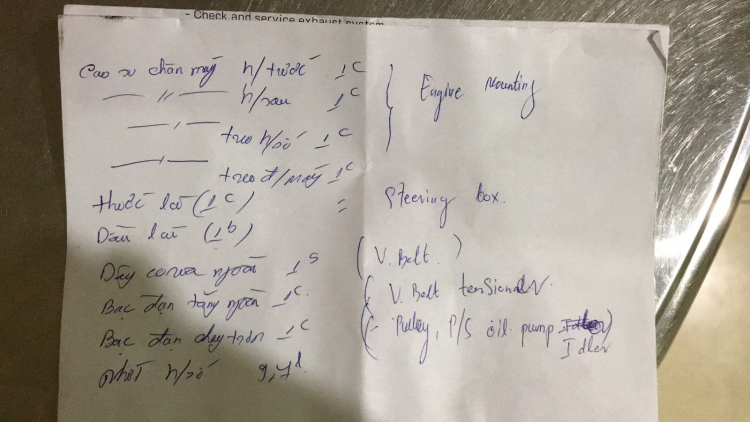 - Check and service exhaust system
Cao su chân máy h/trước 1c
— " — h/sau 1c
— " — treo h/số 1c
— " — treo đ/máy 1c
} Engine mounting
thước lái (1c) = Steering box.
Dầu lái (1b)
Dây coroa ngoài 1s (V. Belt.)
Bạc đạn tăng ngoài 1c. ( V. Belt tensioner
Bạc đạn chạy trơn 1c (- Pulley, P/S oil pump )
Idler
Nhớt h/số 9,7l.